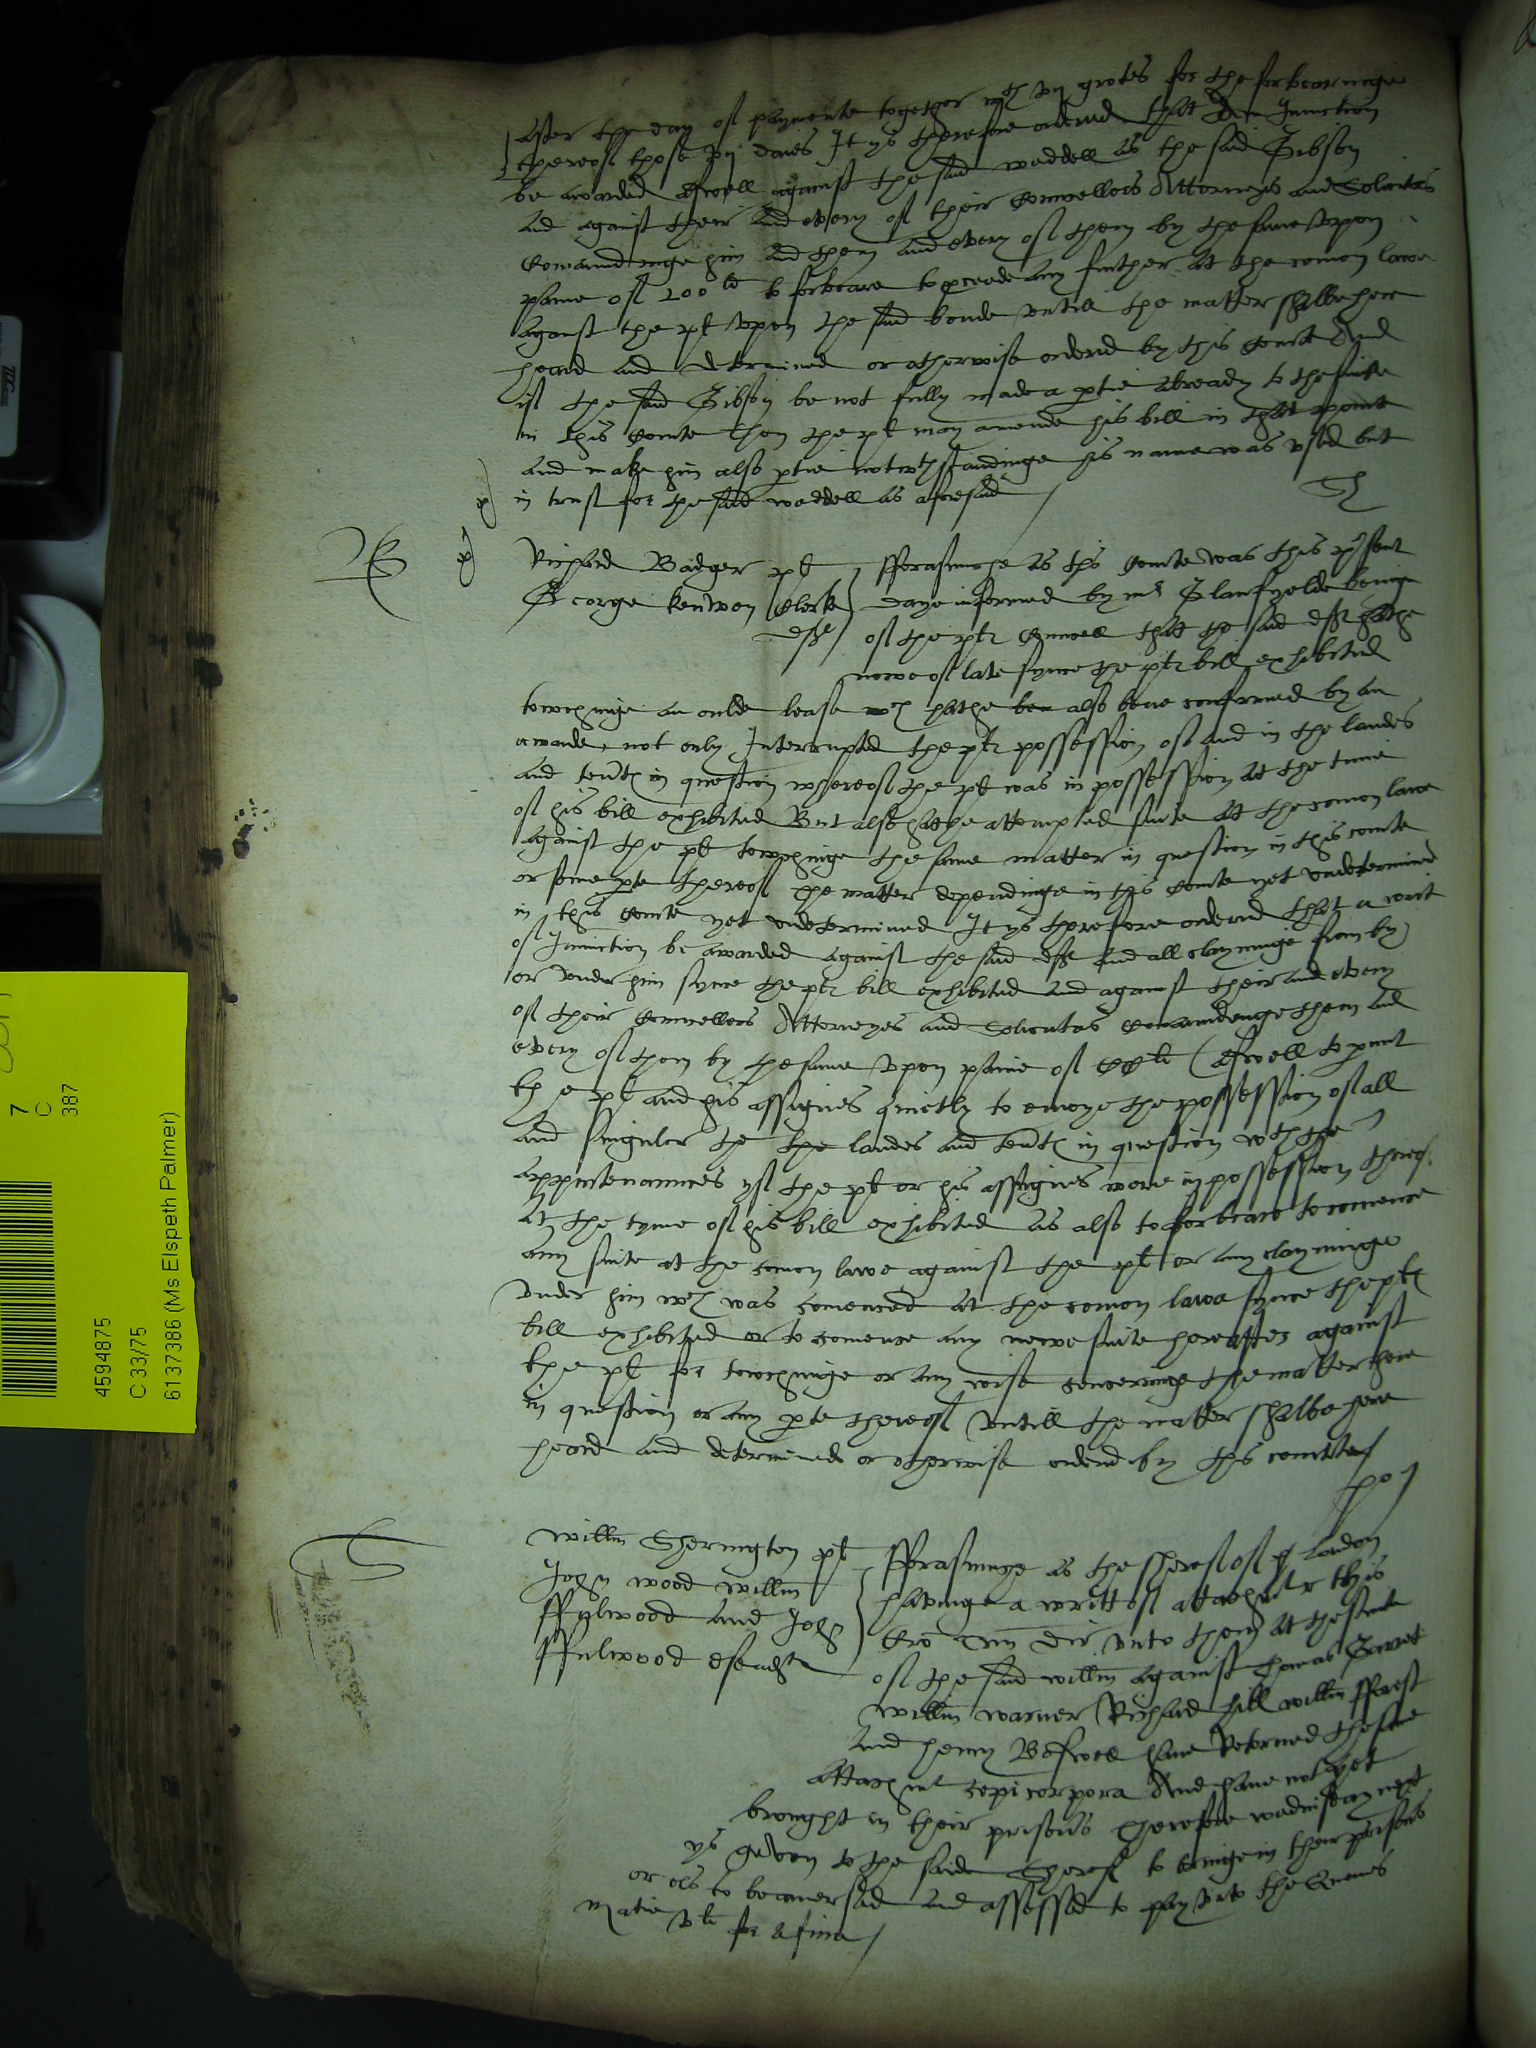 after the day of payment together wth vij grotes for the forbearinge
thereof those xij daies It ys therefore ordered that An Iniunction
be awarded aswell against the said Weddell as the said Gibson
and against their and every of their Counsellors Attorneys and Solicitors
Comaundinge him and them and every of them by the same vpon
paine of 200li to forbeare to pceede any further at the comon lawe
against the pl vpon the said bonde vntill the matter shalbe here
heard and determined or otherwise ordered by this Courte And
if the said Gibson be not fully made a ptie already to the suite
in this Courte then the pl may amende his bill in that pointe
and make him also ptie notwthstandinge his name was vsed but
in trust for the said Weddell as aforesaid /
Richard Badger pl
George Kenwon Clerk
deft
fforasmuche as this Courte was this psent
daye informed by mr Glanfyelde beinge
of the ptes Councell that the said deft hathe
nowe of late synce the ples bill exhibited
towchinge an oulde lease wch hathe ben also bene confirmed by an
awarde, not only Interrupted the ples possession of and in the landes
and tents in question whereof the pl was in possession at the time
of his bill exhibited But also hathe attempted suite at the comon lawe
against the pl towchinge the same matter in question in this courte
or some pte thereof the matter dependinge in this Courte yet vndetermined
in this Courte yet vndetermined It ys therefore ordered that a writ
of Iniunction be awarded against the said deft and all clayminge from by
or vnder him synce the ples bill exhibited and against their and every
of their Councellors Attorneyes and Solicitors Comaundinge them and
every of them by the same vpon paine of CCli (aswell to pmit
the pl and his assignes quietly to enioye the possession of all
and singuler the the landes and tents in question wth the
appurtenaunces yf the pl or his assignes were in possession therof
at the tyme of his bill exhibited as also to forbeare to comence
any suite at the comon lawe against the pl or any clayminge
vnder him wch was comenced at the comon lawe synce the ples
bill exhibited or to comence any newe suite hereafter against
the pl for towchinge or any wise concerninge the matter here
in question or any pte thereof vntill the matter shalbe here
heard and determined or otherwise ordered by this courte /
Willm Sherington pl
John Wood Willm
ffulwood and John
ffulwood defendtes
fforasmuche as the Sheref of of London
havinge a writt of attachmt r this
Cro Dir vnto them at the suite
of the said Willm against Thomas
Willm Warner Richard Hill Willm fforest
and Henry have Retorned the same
attachmt cepi corpora And have not yet
brought in their prisons Therefore wednisday next
ys geven to the saide Sheref to bringe in their prisons
or els to be amersed and assessed to pay vnto the Quenes
Matie vli for a fine /
7
C
387
4594875
C 33/75
6137386 (Ms Elspeth Palmer)